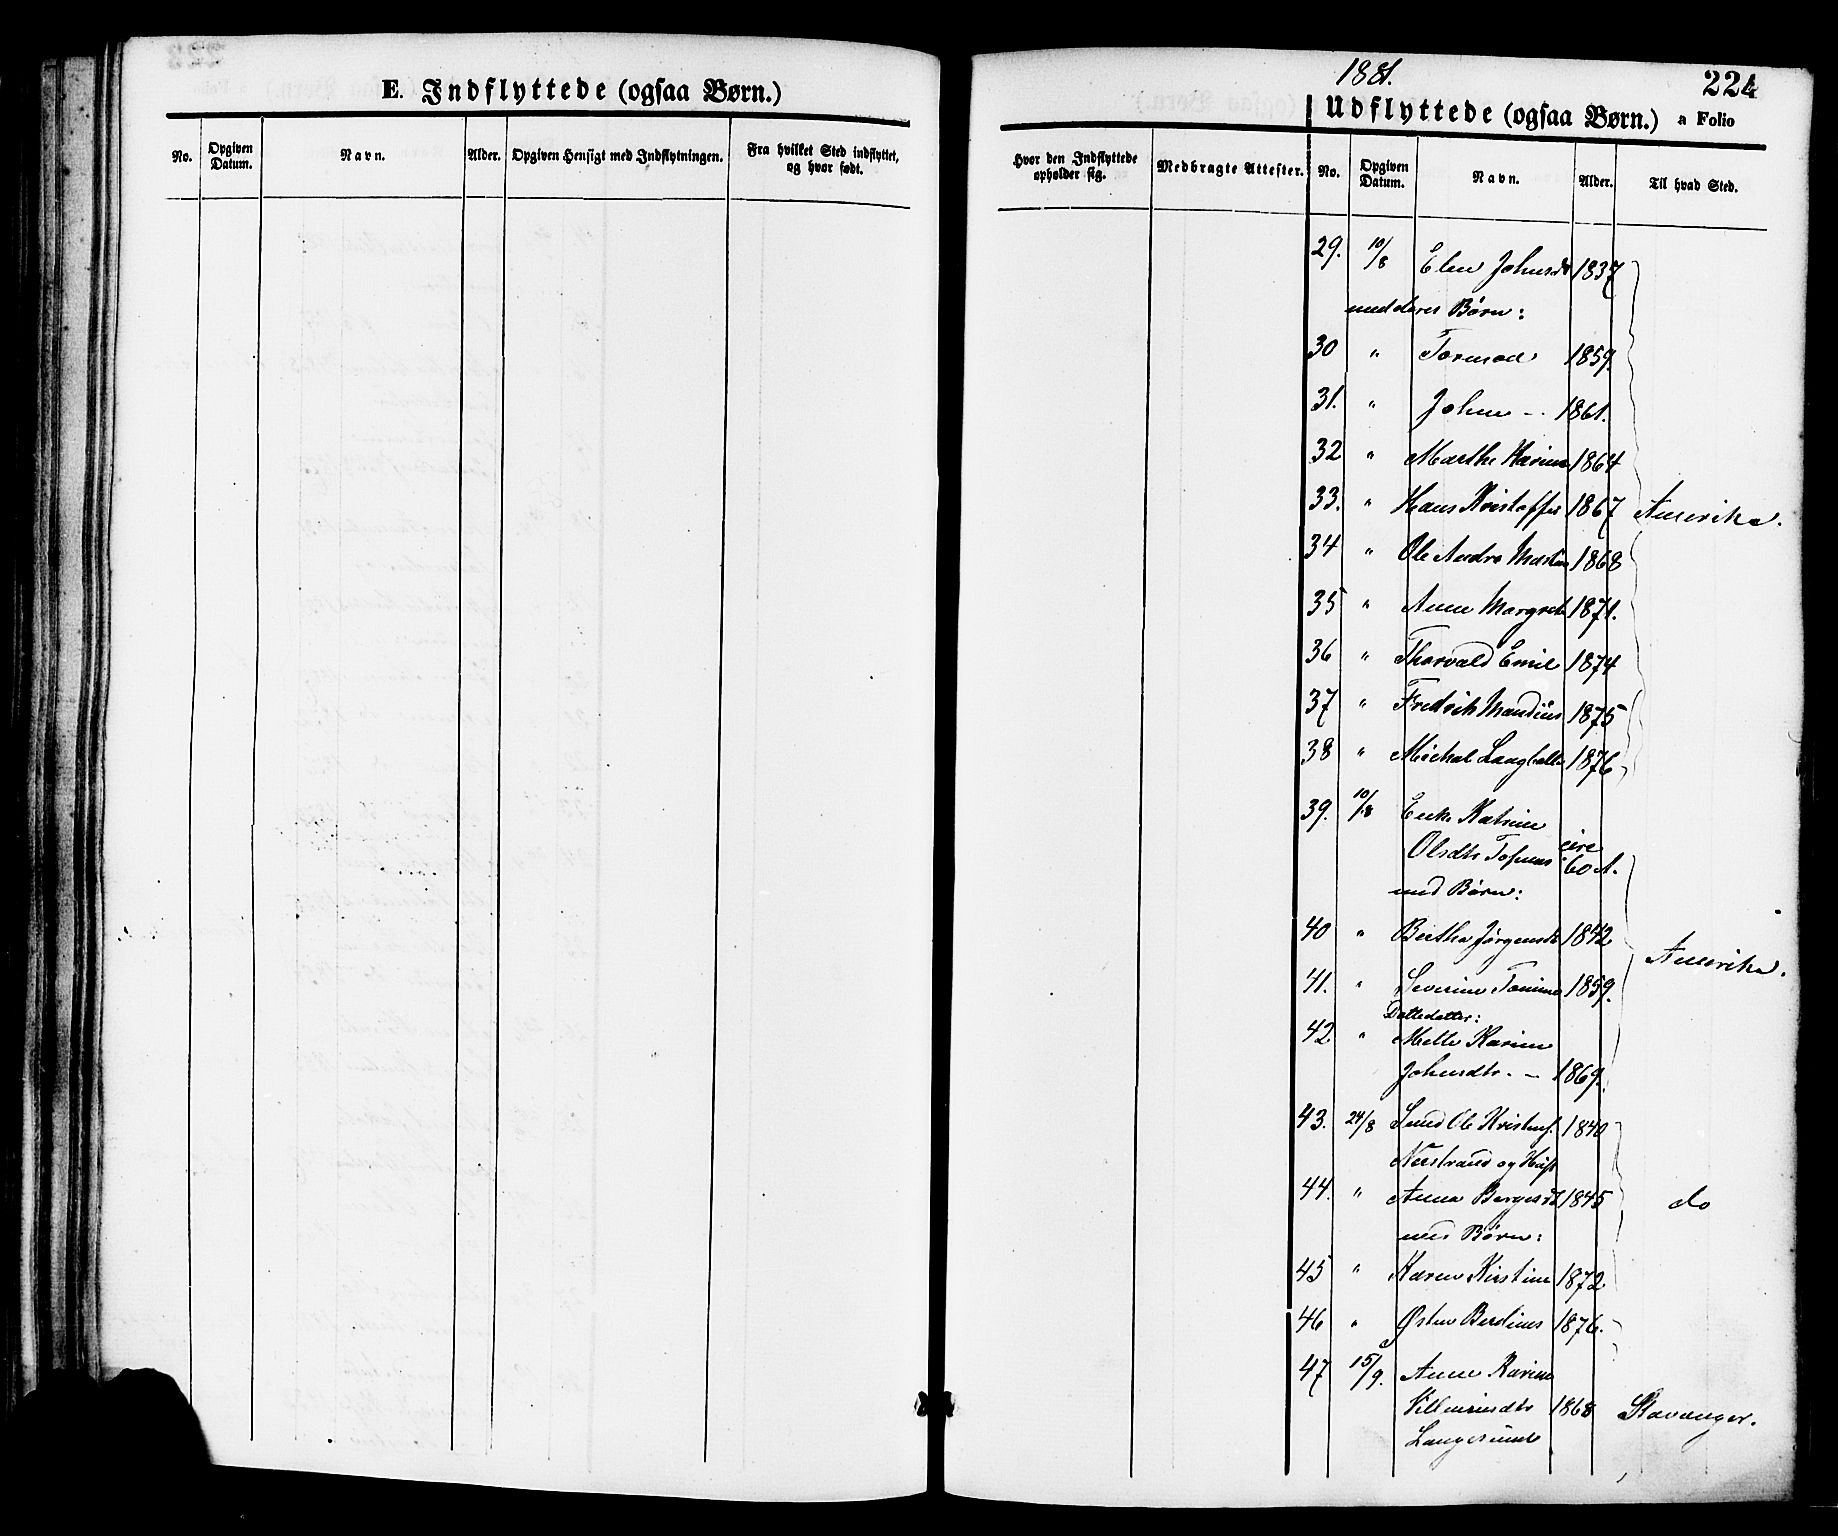 E. Indflyttede (ogsaa Børn.)
No.
Opgiven Datum.
Navn.
Alder.
Opgiven Hensigt med Indflytningen.
Fra hvilket Sted indflyttet, og hvor født.
1881.
224
Udflyttede (ogsaa Børn.) a Folio
Hvor den Indflyttede opholder sig.
Medbragte Attester.
No.
Opgiven Datum.
Navn.
Alder.
Til hvad Sted.
29. 10/8 Elen Johnsdt 1837
med deres Børn:
30 " Tormod 1859.
31. " John - 1861.
32 " Marthe Karine 1864
33. " Hans Kristoffer 1867 Amerika.
34 " Ole Andre Martin 1868
35 " Anne Margrete 1871.
36 " Thorvald Emil 1874
37 " Fredrik Mandius 1875
38 " Michal 1876
39. 10/8 Enke Katrine
Olsdtr cire 60 A.
med Børn:
40 " Bertha Jørgensdt 1842
Amerika.
41. " Severine 1859.
Datterdatter:
42 " Mette Karine
Johnsdtr. - 1869.
43. 24/8 Smed Ole Kristens. 1840
Nerstrand og Hust
44. " Anna Bergesdt 1845 do
med Børn:
45 " Karen Kirstine 1872
46 " Østen Berdines 1876.
47 15/9. Anne Karine
1868 Stavanger.